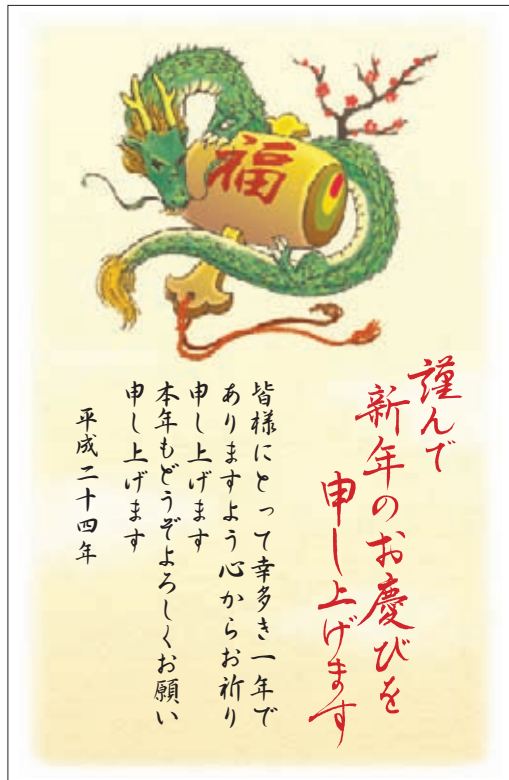 福
謹んで
新年のお慶びを
申し上げます
皆様にとって幸多き一年で
ありますよう心からお祈り
申し上げます
本年もどうぞよろしくお願い
申し上げます
平成二十四年